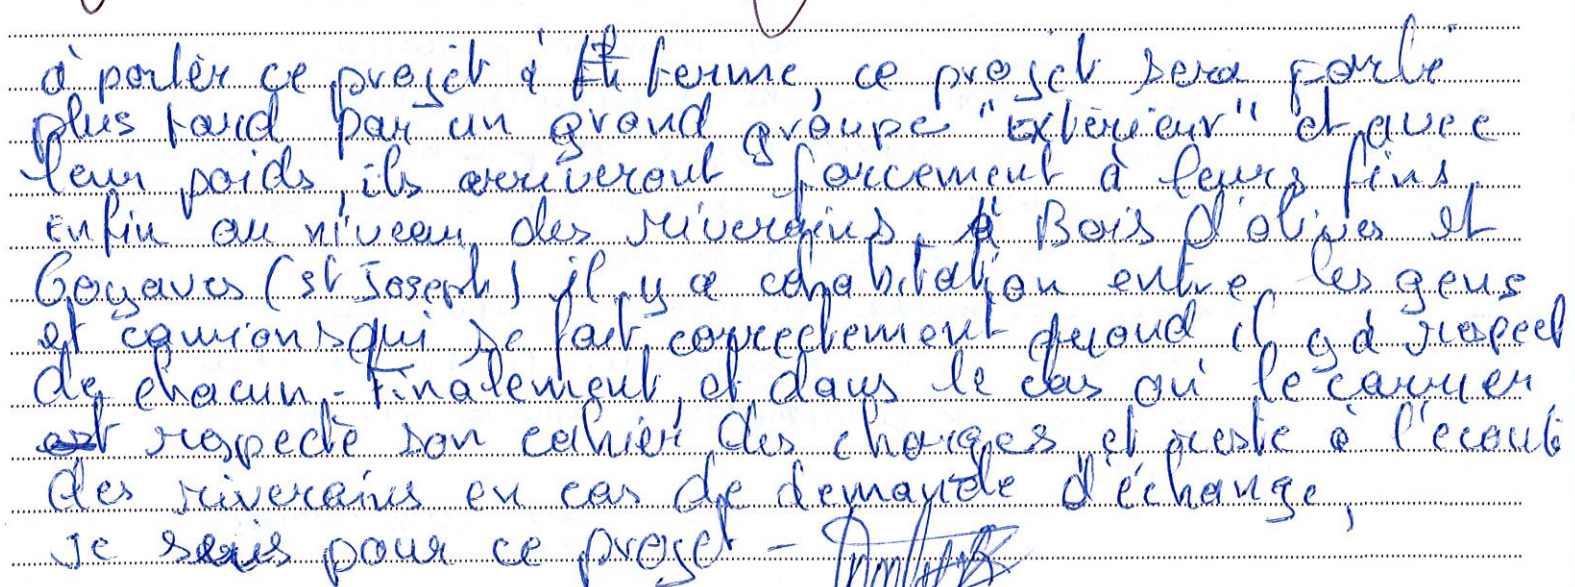 à porter ce projet à terme, ce projet sera porté
plus tard par un grand groupe "extérieur" et avec
leur poids, ils arriveront forcement à leurs fins.
Enfin au niveau des riverains, à Bois d'olives et
Goyaves (st Joseph) il y a cohabitation entre les gens
et camions qui se fait correctement quand il y a respect
de chacun. Finalement, et dans le cas où le carrier
respecte son cahier des charges et reste à l'écoute
des riverains en cas de demande d'échange,
je suis pour ce projet -